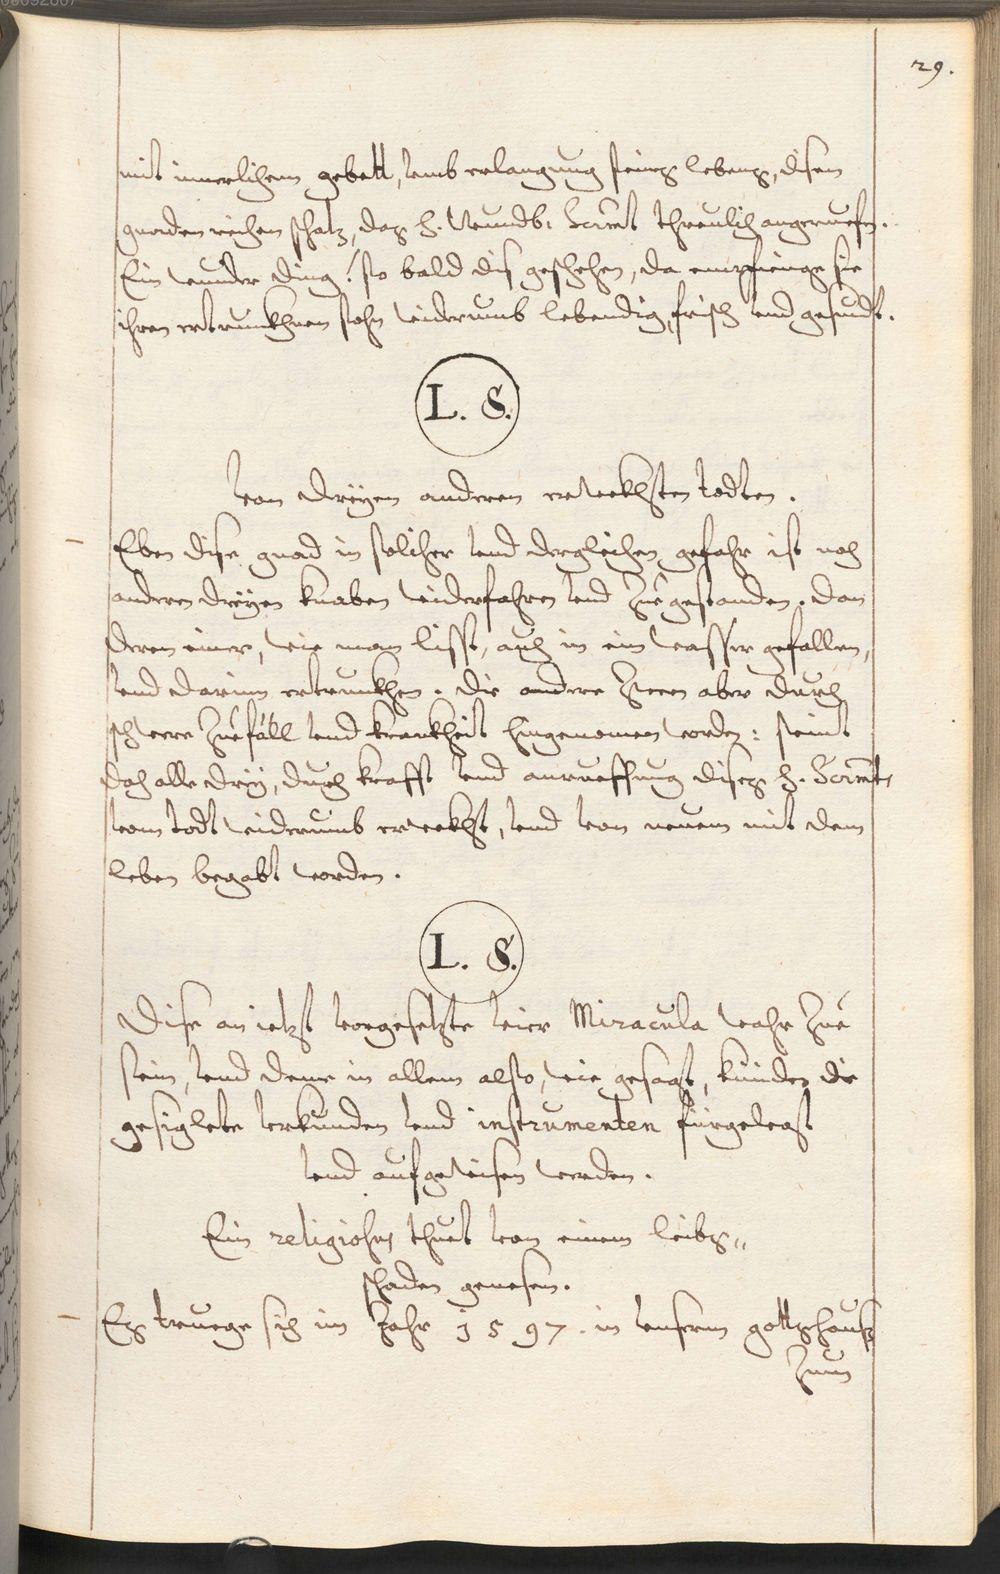 29.
mit innerlichem gebett, vmb erlangung seines lebens, disen
gnadenreichen schatz, das H. Wundb. Sacrament threulich angeruefen.
Ein wunder ding! so bald dis geschehen, da empfienge sie
ihren ertrunkhnen sohn widerumb lebendig, frisch vnd gesundt.
L. S.
Von dreyen anderen erwekhten todten.
Eben dise gnad in solicher vnd dergleichen gefahr ist noch
anderen dreyen knaben widerfahren vnd zuegestanden. dan
deren einer, wie man lisst, auch in ein wasser gefallen,
vnd darinn ertrunkhen. die andere zween aber durch
schwere zuefäll vnd krankheit hingenomen worden: seint
doch alle drey, durch krafft vnd anrueffung dises H. Sacraments
vom todt widerumb erwekht, vnd von neuem mit dem
leben begabt worden.
L. S.
Dise an ietzt vorgesetzte vier Miracula wahr zue
sein, vnd deme in allem also, wie gesagt, künden die
gesiglete vrkunden vnd instrumenten fürgelegt
vnd aufgewisen werden.
Ein religiosus thuet von einem leibs„
schaden genesen.
Es truege sich im Jahr 1597. in vnserm gottshauss
zum